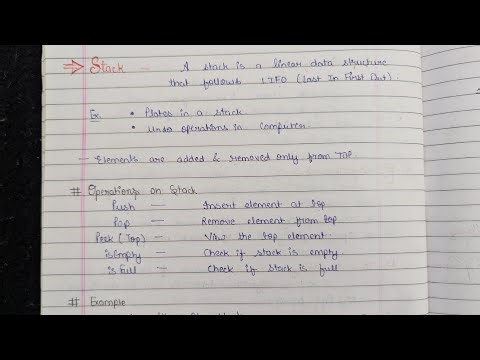 ⇒ Stack — A stack is a linear data structure
that follows LIFO (Last In First Out).
Ex. • Plates in a stack
• Undo operations in Computer.
— Elements are added & removed only from TOP.
# Operations on Stack
Push — Insert element at top
Pop — Remove element from top
Peek (Top) — View the top element.
isEmpty — Check if stack is empty.
isFull — Check if stack is full
# Example